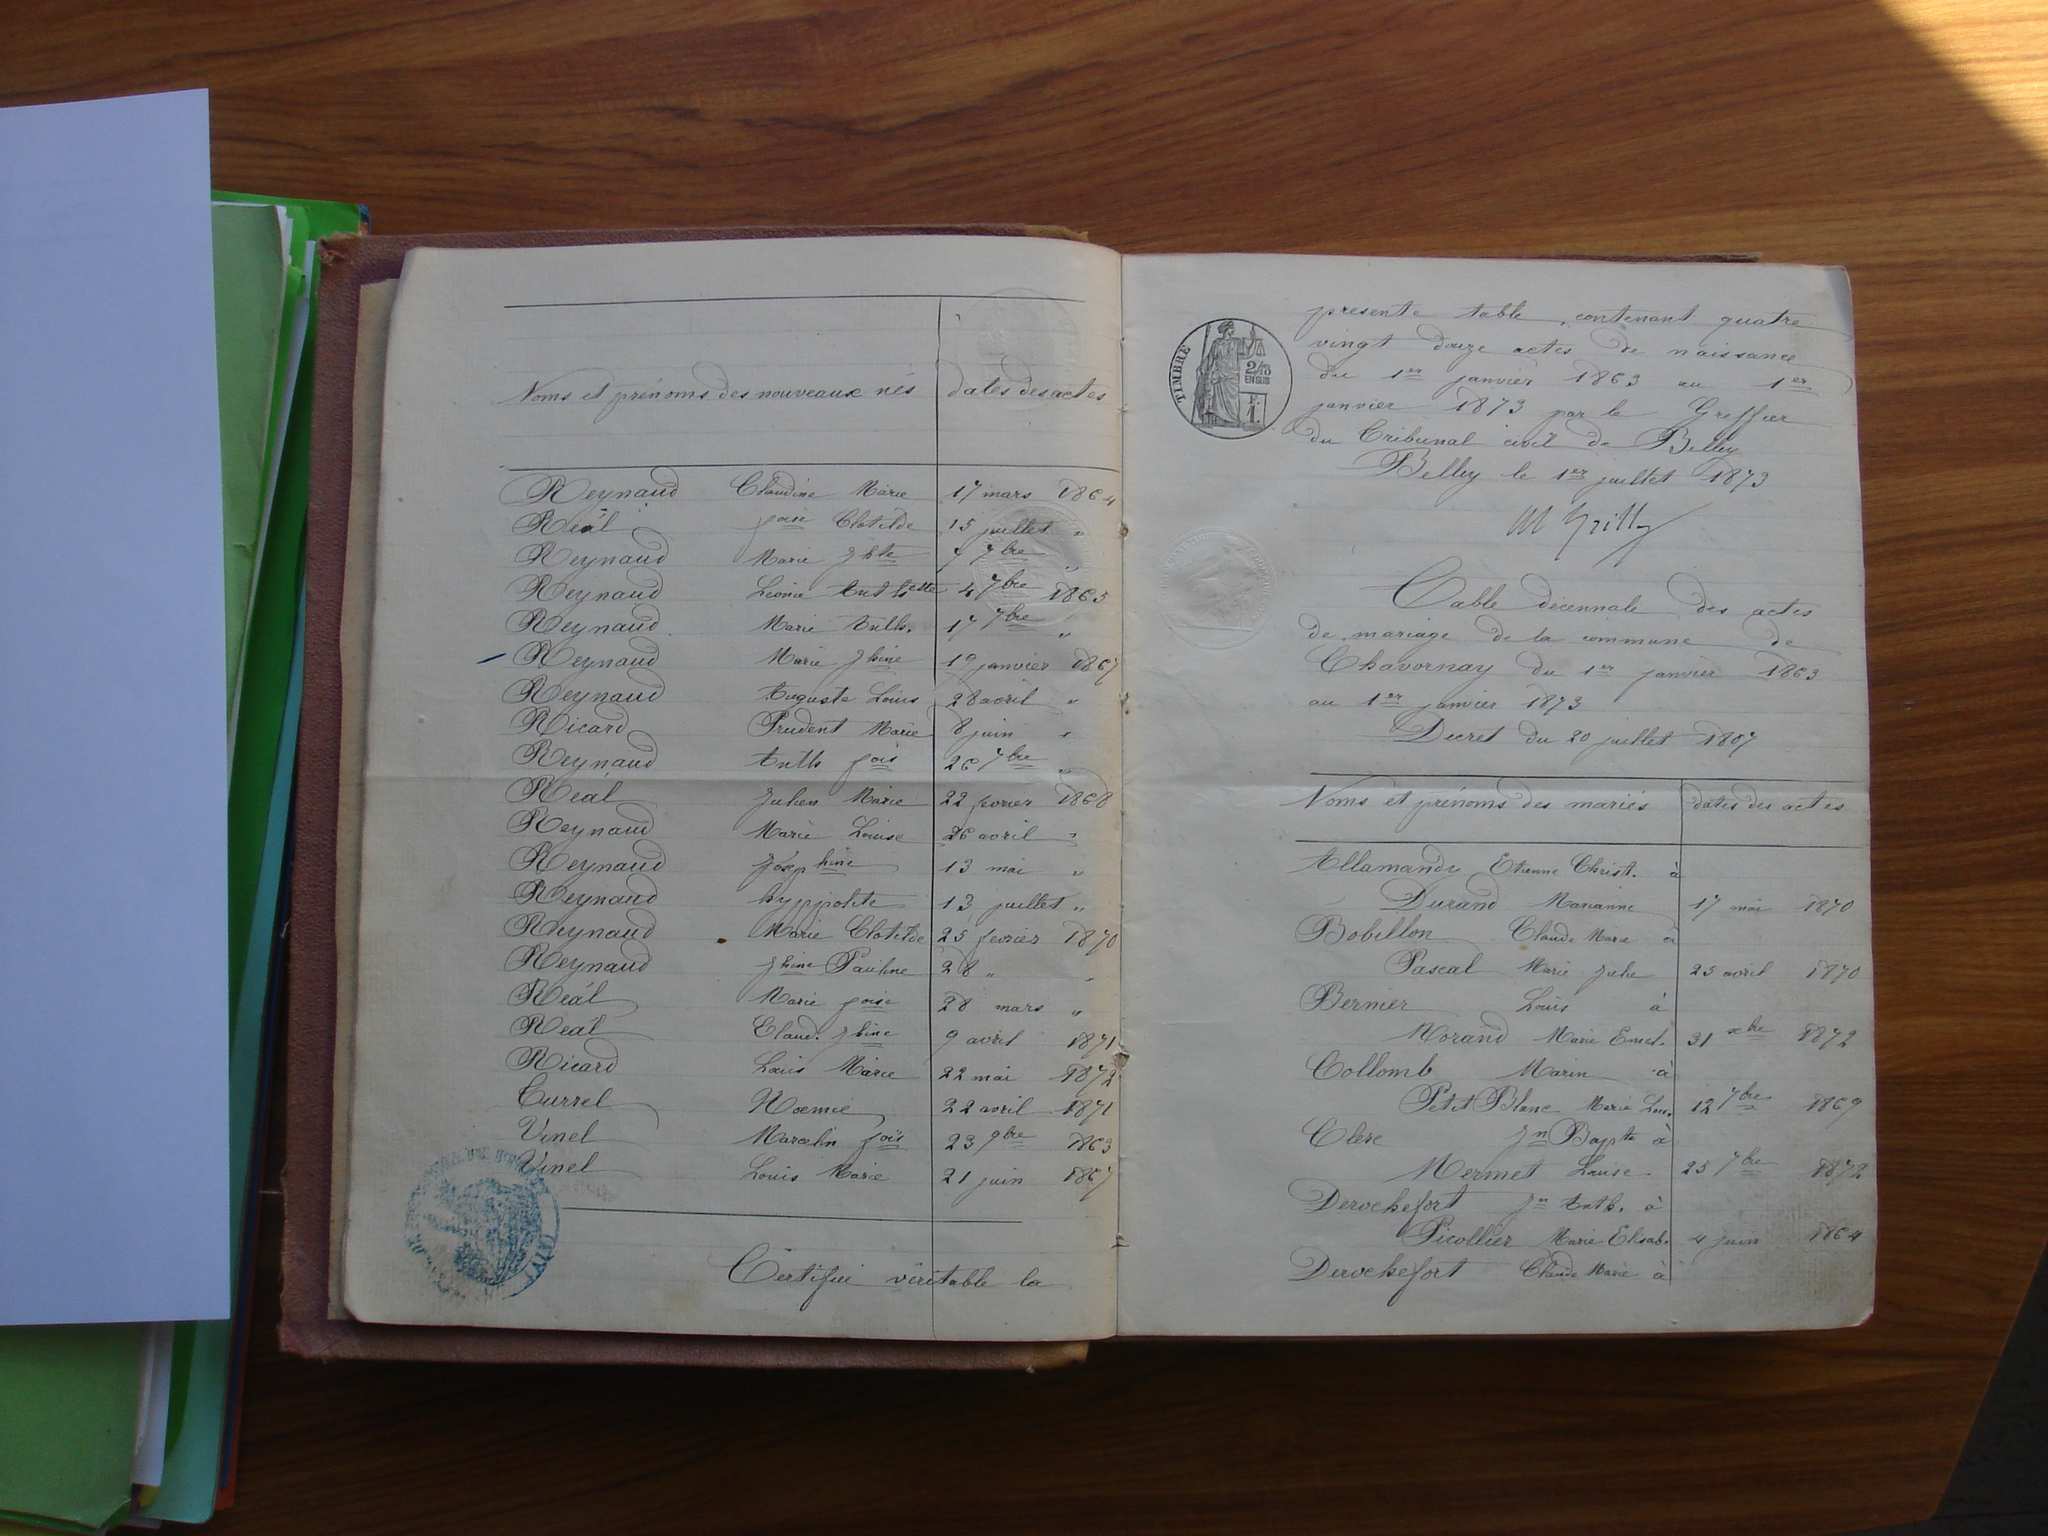 Noms et prénoms des nouveaux nés dates des actes
Reynaud Claudine Marie 17 mars 1864
Réal foise Clotilde 15 juillet "
Reynaud Marie Jhte 7bre "
Reynaud Léonie Anthtte 4 7bre 1865
Reynaud Marie Anth. 17 7bre "
Reynaud Marie Jhine 19 janvier 1867
Reynaud Auguste Louis 28 avril "
Ricard Prudent Marie 8 juin "
Reynaud Anth fois 26 7bre "
Réal Julien Marie 22 fevrier 1868
Reynaud Marie Louise 26 avril "
Reynaud Joséphine 13 mai "
Reynaud hyppolite 13 juillet "
Reynaud Marie Clotilde 25 fevrier 1870
Reynaud Jhine Pauline 28 " "
Réal Marie foise 28 mars "
Réal Claud. Jhine 9 avril 1871
Ricard Louis Marie 22 mai 1872
Currel Noemie 22 avril 1871
Vinel Marcelin fois 23 9bre 1863
Vinel Louis Marie 21 juin 1867
Certifié véritable la
TIMBRE
2/10
EN SUS
F.
1.
presente table, contenant quatre
vingt douze actes de naissance
du 1er janvier 1863 au 1er
janvier 1873 par le Greffier
du Tribunal civil de Belley
Belley le 1er juillet 1873
Table décennale des actes
de mariage de la commune de
Chavornay du 1er janvier 1863
au 1er janvier 1873
Decret du 20 juillet 1807
Noms et prénoms des mariés dates des actes
Allamandy Etienne Christ. à
Durand Marianne 17 mai 1870
Bobillon Claude Marie à
Pascal Marie Julie 25 avril 1870
Bernier Louis à
Morand Marie Emel. 31 xbre 1872
Collomb Marin à
Petit Blanc Marie Lou. 12 7bre 1869
Clerc Jn Bapte à
Mermet Louise 25 7bre 1872
Derochefort Jn Anth. à
Picollier Marie Elisab. 4 juin 1864
Derochefort Claude Marie à